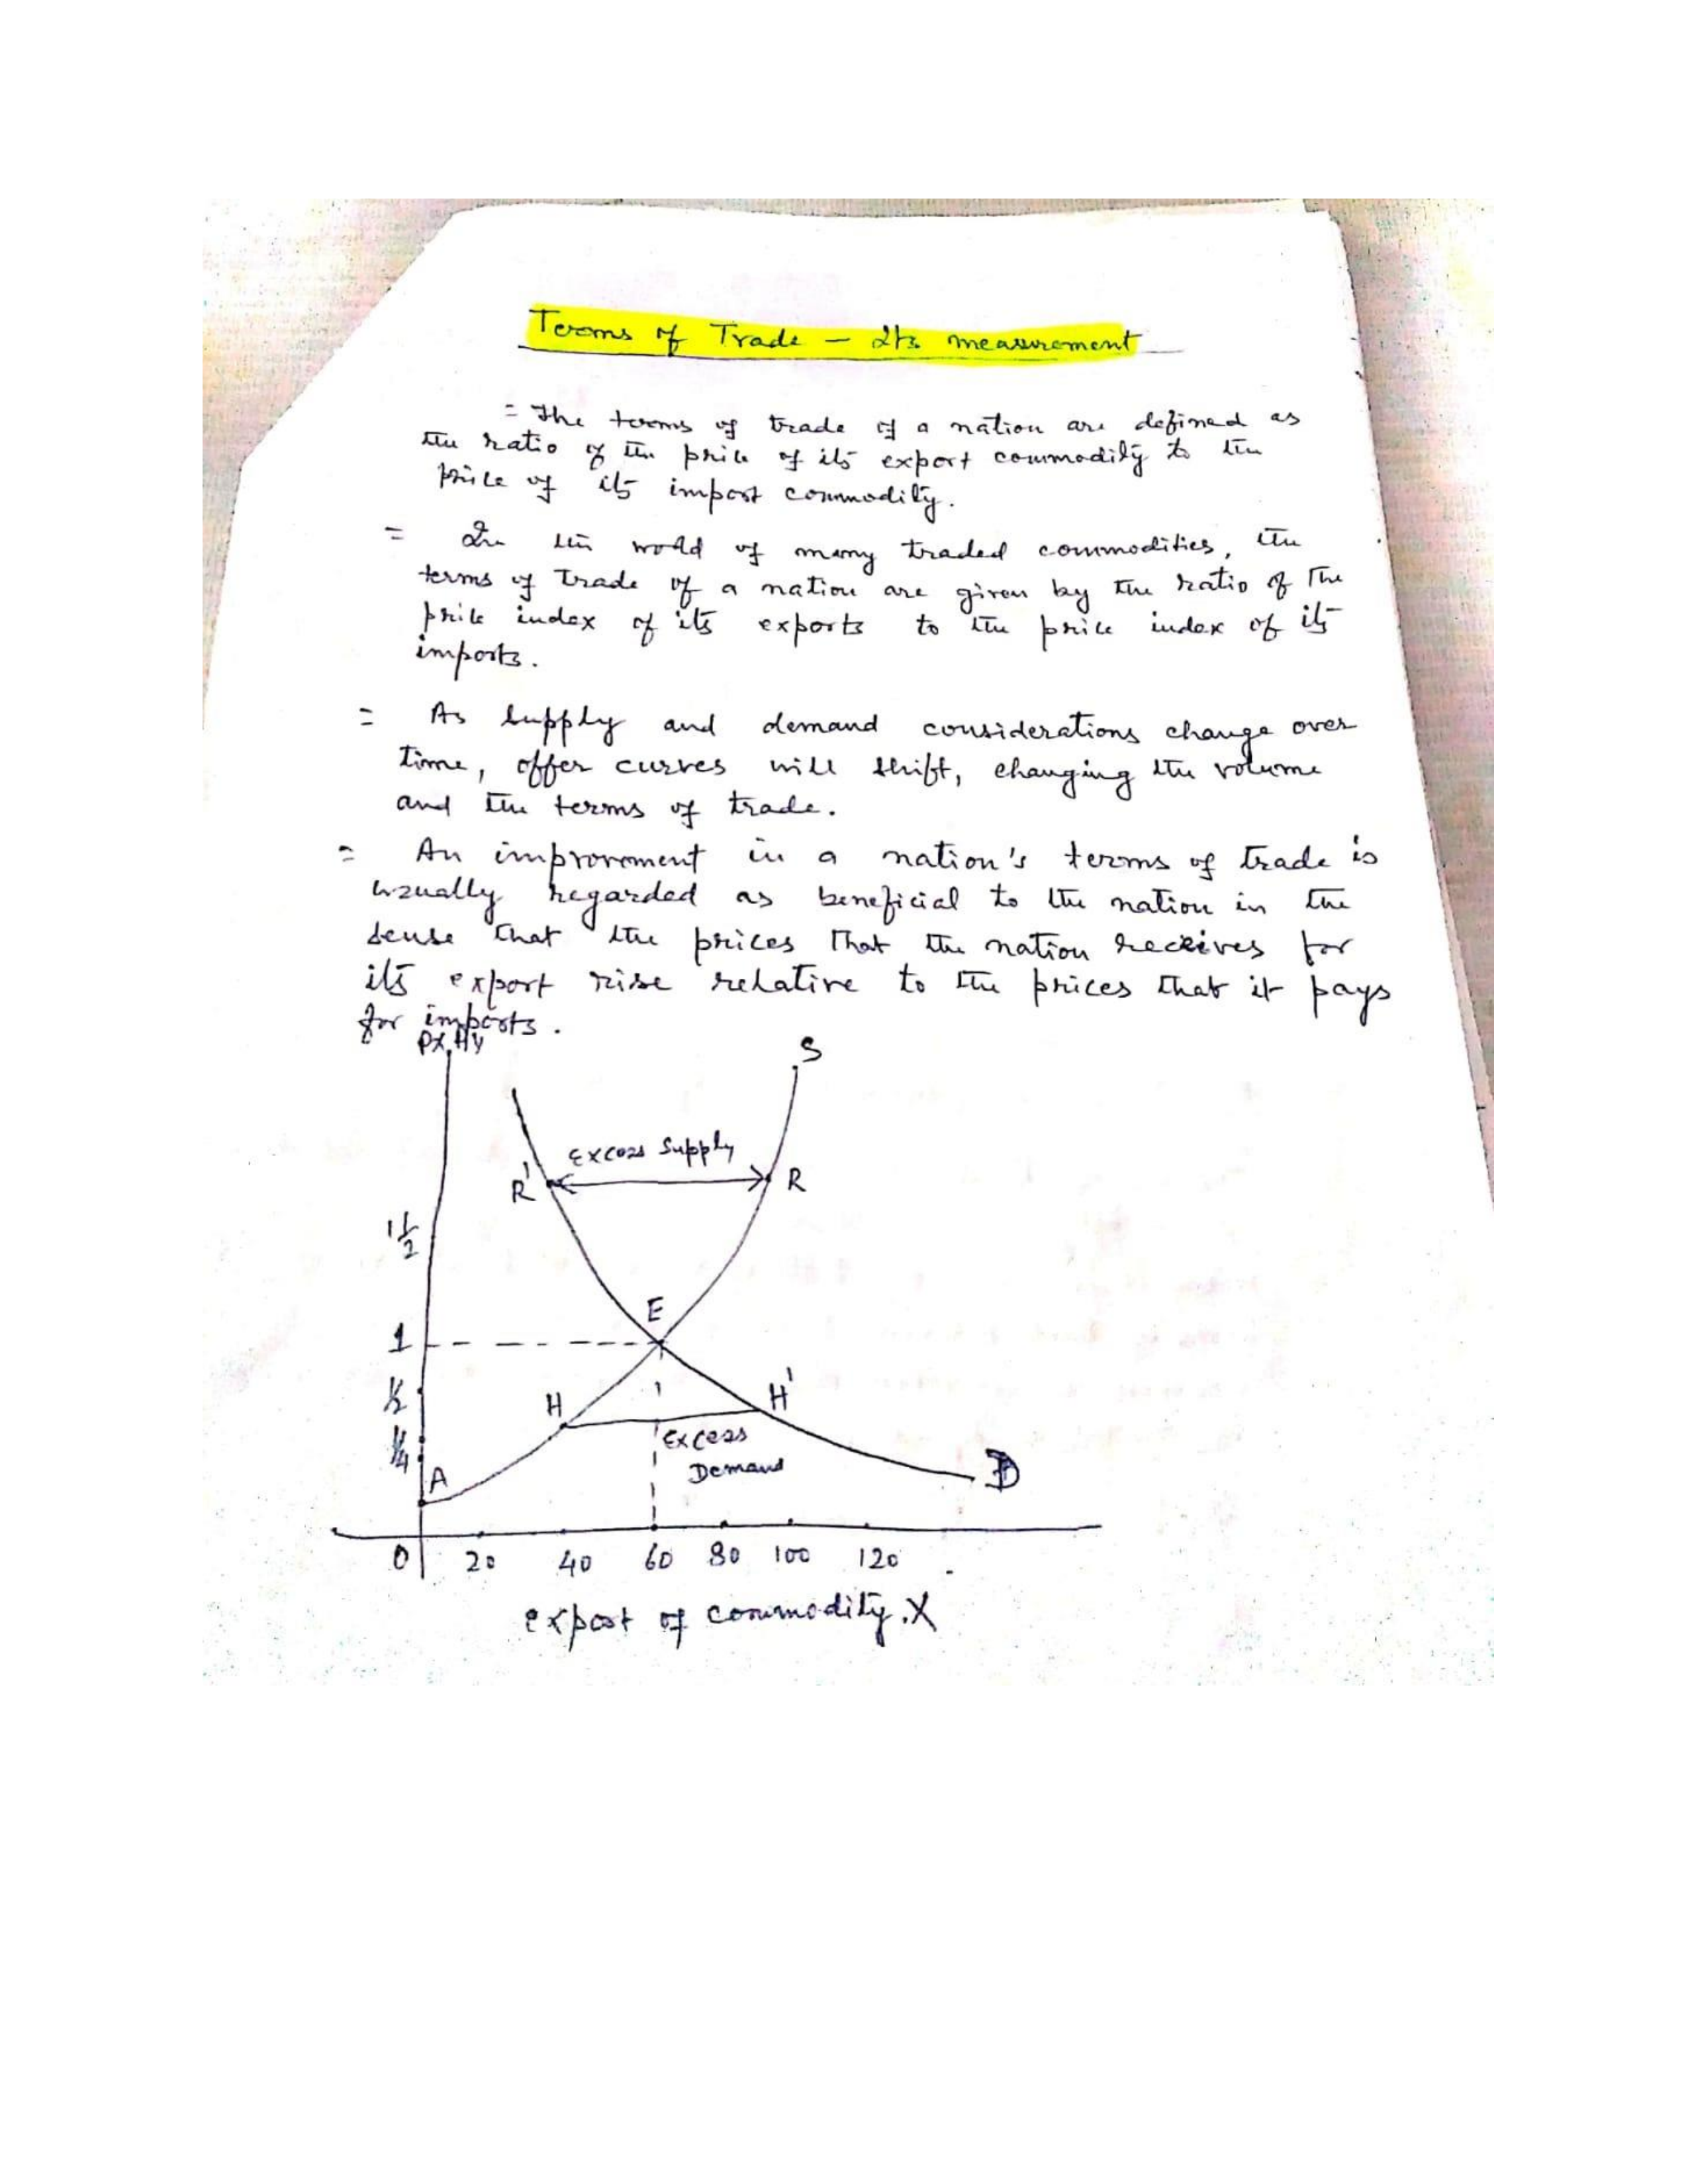 Terms of Trade - Its measurement
= The terms of trade of a nation are defined as
the ratio of the price of its export commodity to the
price of its import commodity.
= In the world of many traded commodities, the
terms of trade of a nation are given by the ratio of the
price index of its exports to the price index of its
imports.
= As supply and demand considerations change over
time, offer curves will shift, changing the volume
and the terms of trade.
= An improvement in a nation's terms of trade is
usually regarded as beneficial to the nation in the
sense that the prices that the nation receives for
its export rise relative to the prices that it pays
for imports.
S
Excess Supply
R'
R
1 1/2
E
1
1/2
H
H'
1/4
Excess
Demand
A
D
0 20 40 60 80 100 120
export of commodity.X